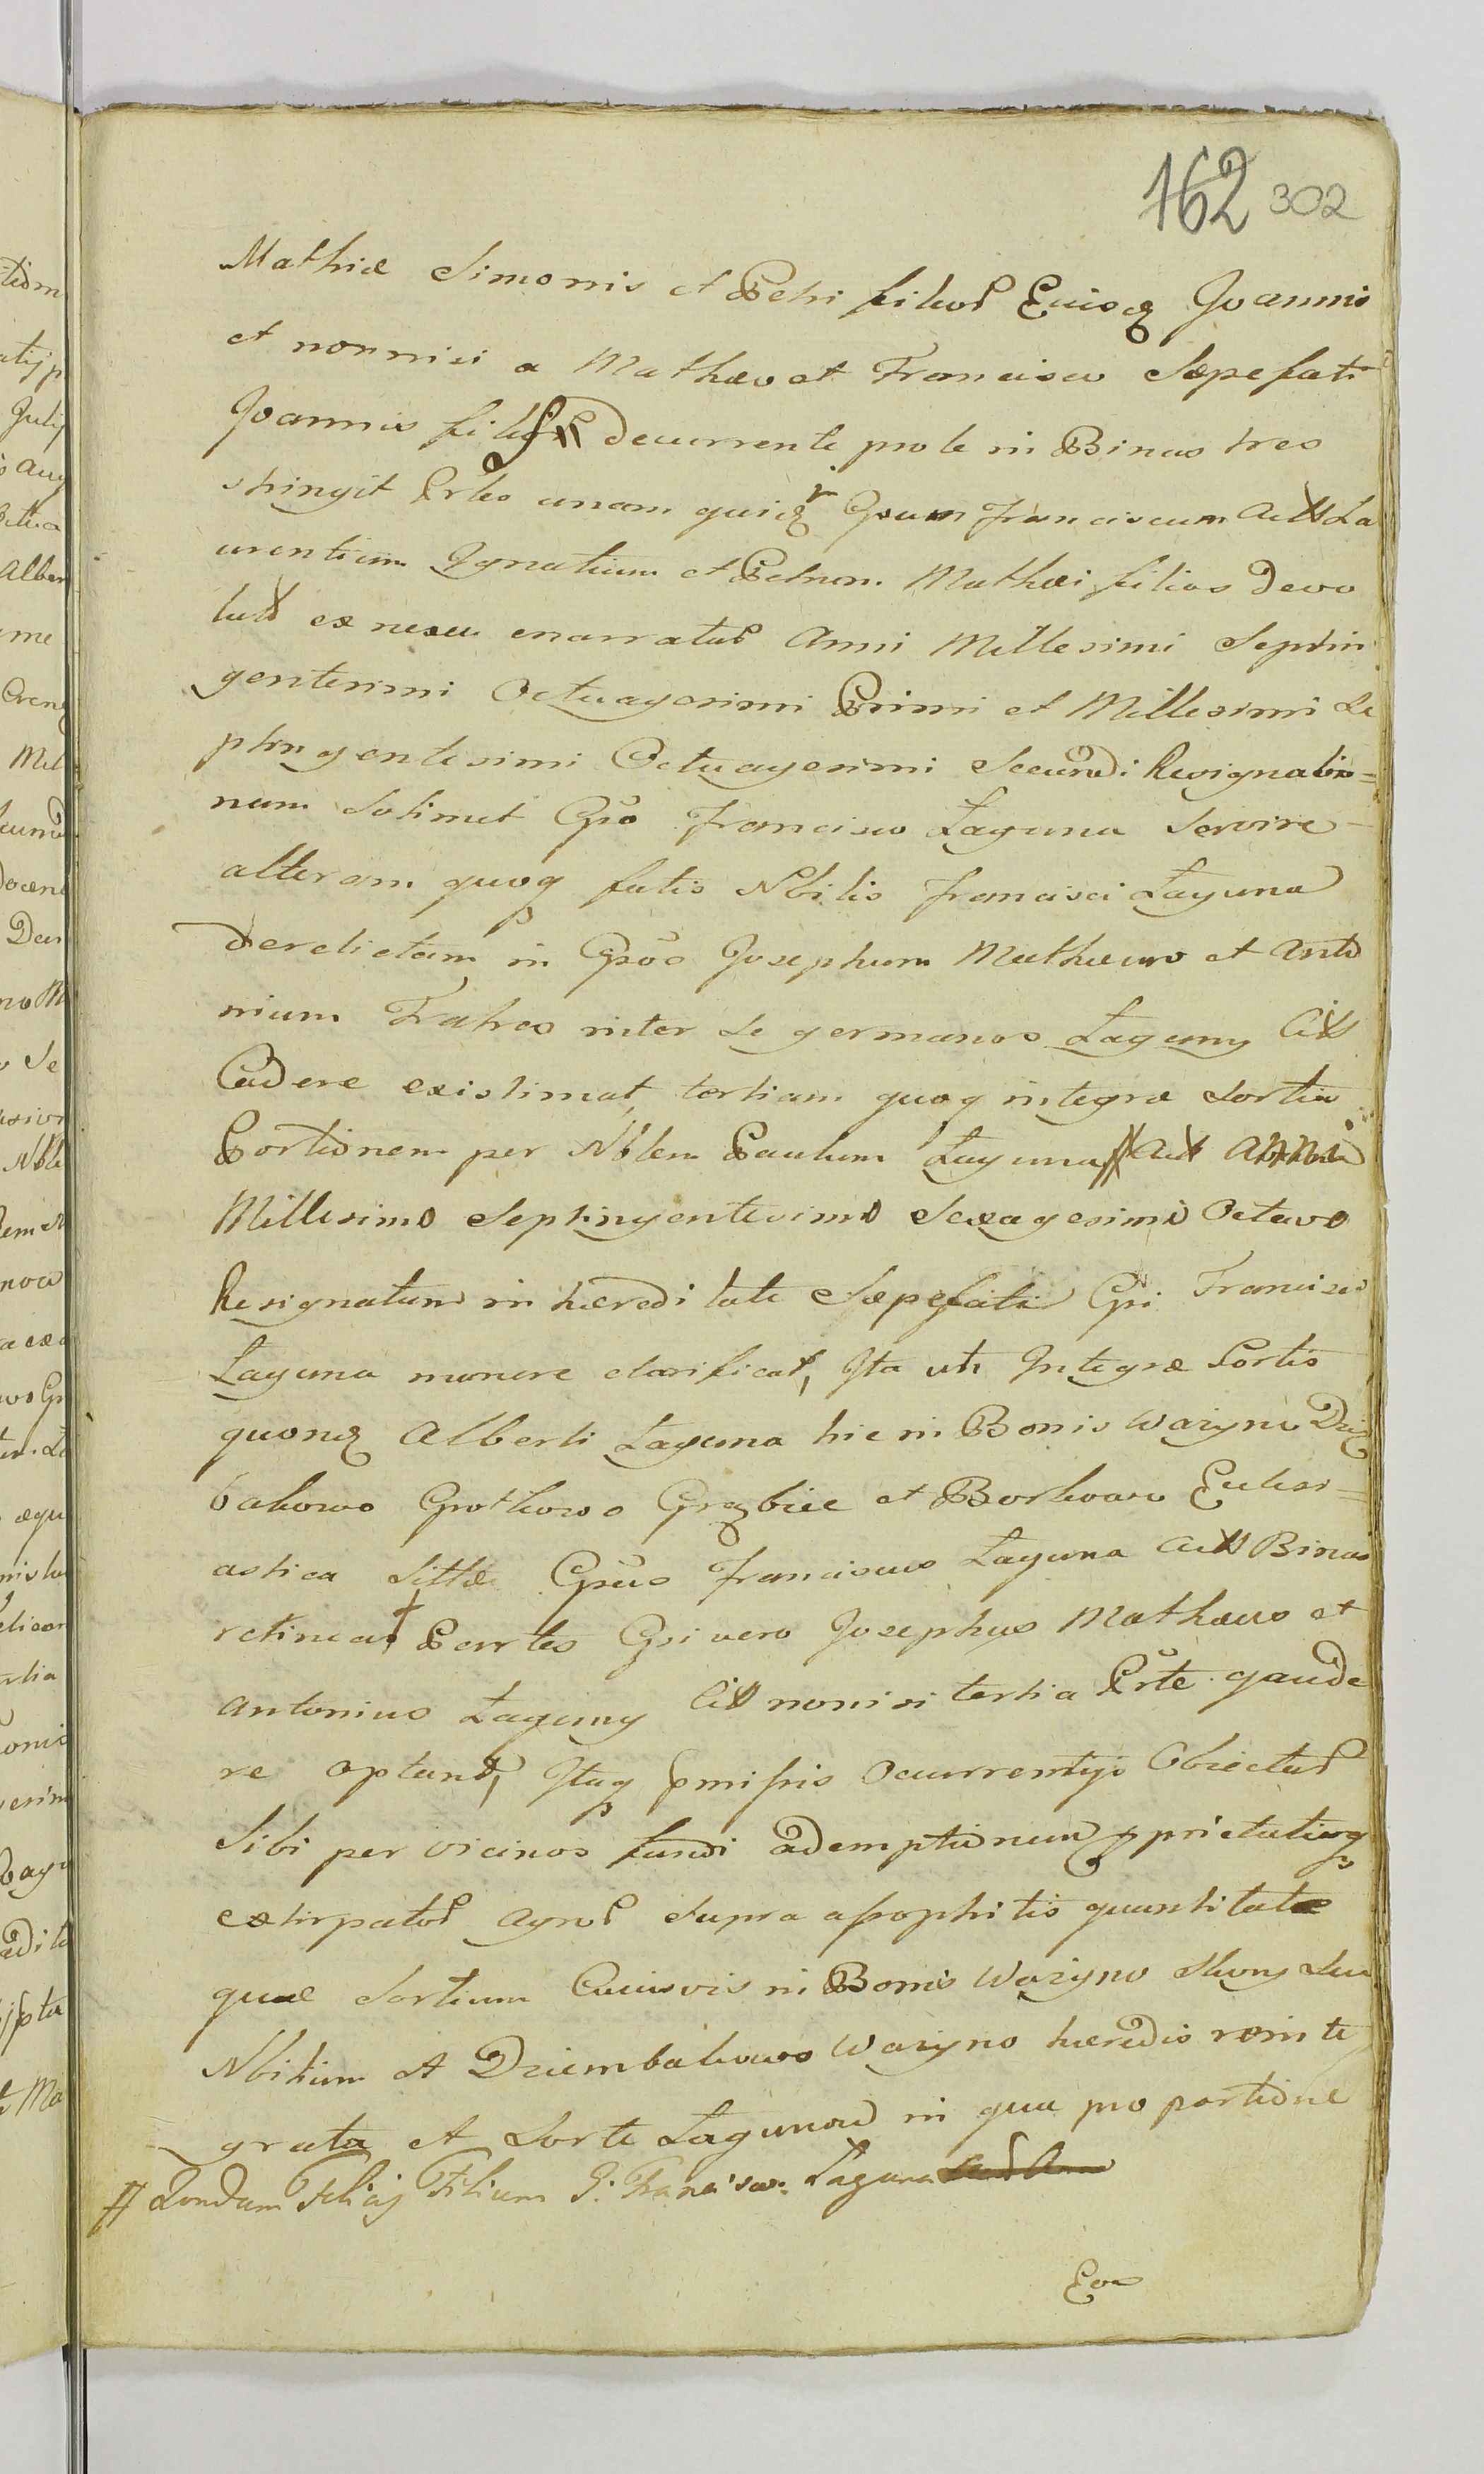 162 302
Mathiæ Simonis et Petri filior Eiusq Joannis
et nonnisi a Mathæo et Francisco Sæpefati
Joannis decurrente prole in Binas tres
stringit Prtes unam quiq Gsum Franciscum Act La
urentium Ignatium et Petrum Mathæi filios devo
lut ex nexu enarratar Anni Millesimi Septin
gentesimi Octuagesimi Primi et Millesimi Se
ptingentesimi Octuagesimi Secundi Resignatio=
num Sotimet Gso Francisco Łaguna Servire
alteram quoq fatis Nbilis Francisci Łaguna
derelictam in Gsos Josephum Mathæum et Anto
nium Fratres inter Se germanos Łaguny Act
Cadere existimat, tertiam quoq integræ Sortis
Portionem per Nblem Paulum Łaguna # Act Anni
Millesimo Septingentesimo Sexagesimo Octavo
Resignatam in hæreditate Sæpefati Gsi Francisci
Łaguna munere clarificat, Ita uti Integræ Sortis
quonq Alberti Łaguna hic in Bonis Warzyno Dzię
bakowo Grothowo Grzbiec et Borkowo Ecclesi=
astica Sittæ Gsus Franciscus Łaguna Act Binas
retineat Parrtes Gsi vero Josephus Mathæus et
Antonius Łaguny Act nonisi tertia Prte gaude
re optant, Itaq pmissis Ocurrentijs Obiectar
Sibi per vicinos fundi ademptionum pprietatisq
extirpator Agror Supra apophitis quantitatæ
quæ Sortium Cuiusvis in Bonis Warzyno Skury Seu
Nbilium et Dziembakowo Warzyno hæredis reinte
grata et Sorte Łagunow in qua pro portione
# Quondam Feliciss Filium G. Francisci Łaguna
Eor